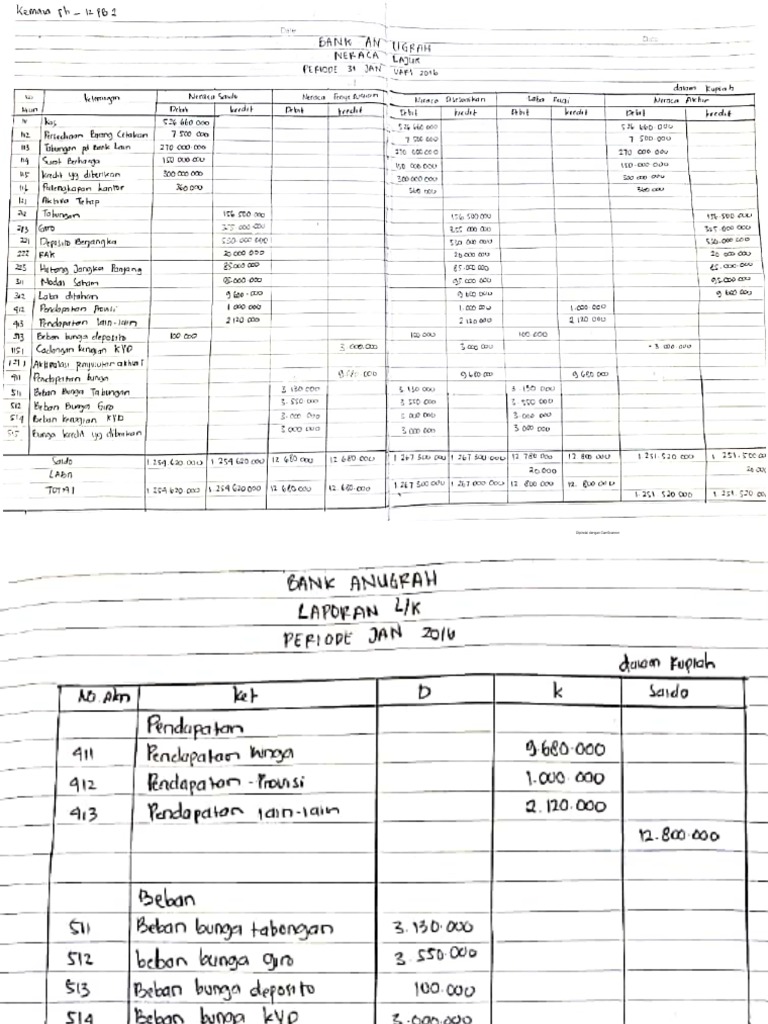 Kemava Ph - 12 PB 2
Date
Date
BANK ANUGRAH
NERACA LAJUR
PERIODE 31 JANUARI 2016
dalam Rupiah
No Akun Keterangan Neraca Saldo Neraca Penyesuaian Neraca Disesuaikan Laba Rugi Neraca Akhir
Debit kredit Debit kredit Debit kredit Debit kredit Debit kredit
111 kas 526 660 000 526 660 000 526 660 000
112 Persediaan Barang Cetakan 7 500 000 7 500 000 7 500.000
113 Tabungan pd Bank Lain 270 000 000 270 000 000 270 000.000
114 Surat Berharga 150 000 000 150 000 000 150.000 000
115 kredit yg diberikan 300 000 000 300 000 000 300 000.000
116 Perlengkapan kantor 360 000 360 000 360 000
121 Aktiva Tetap
211 Tabungan 156 500 000 156 500 000 156 500 000
213 Giro 355 000 000
221 Deposito Berjangka 530 000 000 530 000 000 530.000 000
222 RAK 20 000 000 20 000 000 20 000 000
223 Hutang Jangka Panjang 85 000 000 85 000 000 85.000.000
311 Modal Saham 95.000.000 95 000 000 95.000 000
312 Laba ditahan 9 600.000 9 600 000 9 600 000
412 Pendapatan Provisi 1 000 000 1.000 000 1 000 000
413 Pendapatan lain-lain 2 120 000 2 120 000 2 120 000
513 Beban bunga deposito 100 000 100 000 100 000
1151 Cadangan kerugian KYD 3 000.000 3 000 000 -3 000 000
1211 Akumulasi penyusutan aktiva
411 Pendapatan bunga 9 680 000 9 680 000 9 680 000
511 Beban Bunga Tabungan 3 130 000 3 130 000 3 130 000
512 Beban Bunga Giro 3 550 000 3 550 000 3 550 000
514 Beban kerugian KYD 3.000 000 3 000 000 3 000 000
515 Bunga kredit yg diberikan 3 000 000 3 000 000 3 000 000
Saldo 1 254.620 000 1 254 620 000 12 680 000 12 680 000 1 267 300 000 1 267 300 000 12 780 000 12 800 000 1 251.520 000 1 251.500 00
LABA 20.000 20.00
TOTAl 1 254 620 000 1 254 620 000 12 680 000 12 680 000 1 267 300 000 1 267 000 000 12 800 000 12 800 000 1 251 520 000 1 251 520 00
BANK ANUGRAH
LAPORAN L/K
PERIODE JAN 2016
dalam Rupiah
No. Akn ket D k Saldo
Pendapatan
411 Pendapatan bunga 9.680.000
412 Pendapatan - Provisi 1.000.000
413 Pendapatan lain-lain 2.120.000
12.800.000
Beban
511 Beban bunga tabungan 3.130.000
512 beban bunga giro 3.550.000
513 Beban bunga deposito 100.000
514 Beban bunga KYD 3.000.000